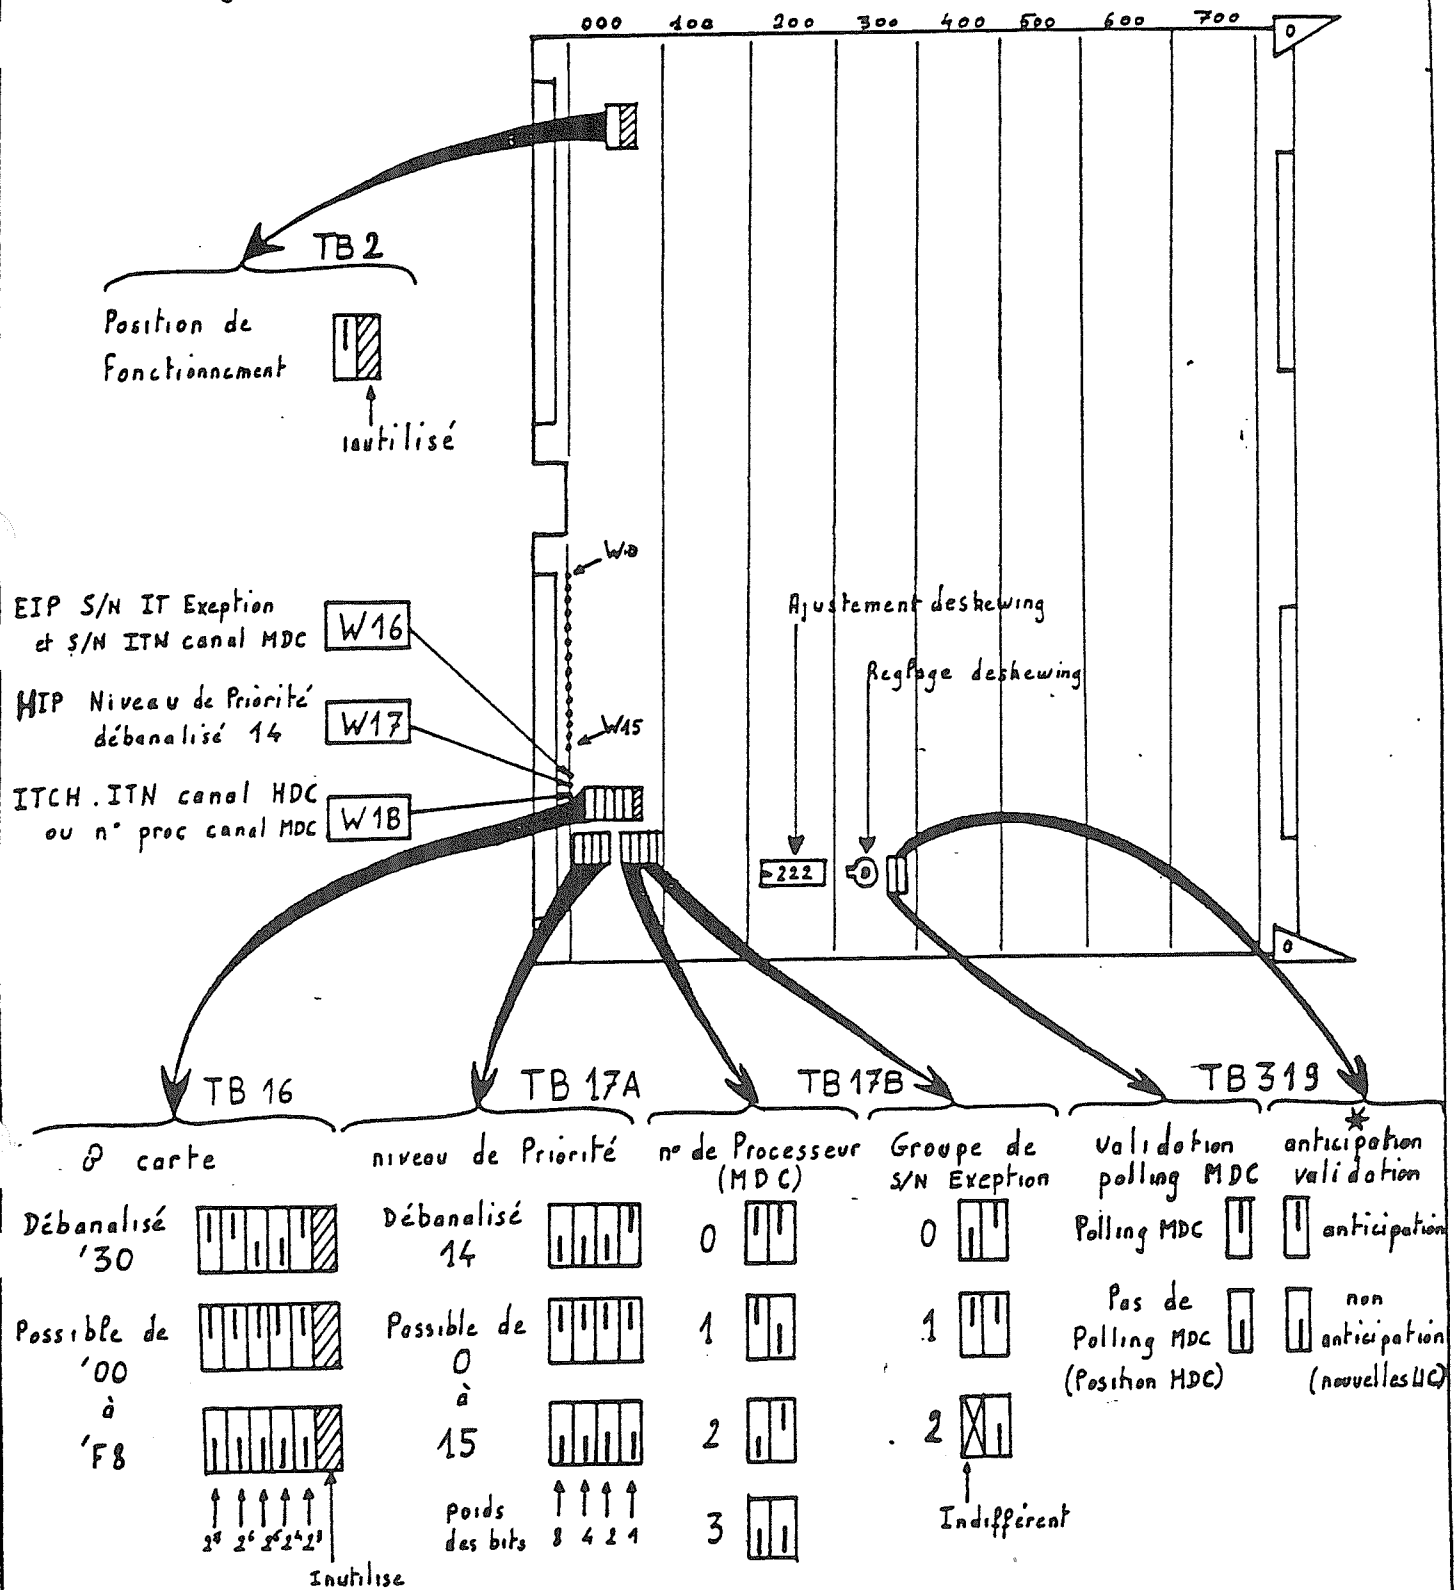 000 100 200 300 400 500 600 700
0
TB 2
Position de
Fonctionnement
inutilisé
W0
EIP S/N IT Exeption
et S/N ITN canal MDC
W16
HIP Niveau de Priorité
débanalisé 14
W17
W15
ITCH.ITN canal HDC
ou n° proc canal MDC
W18
Ajustement deskewing
Reglage deskewing
222
0
TB 16
carte
Débanalisé
'30
Possible de
'00
à
'F8
2⁶ 2⁴
Inutilise
TB 17A
niveau de Priorité
Débanalisé
14
Possible de
0
à
15
poids
des bits
8 4 2 1
TB 17B
n° de Processeur
(MDC)
0
1
2
3
Groupe de
S/N Exeption
0
1
2
Indifférent
TB 319
validation
polling MDC
Polling MDC
Pas de
Polling MDC
(Position HDC)
*
anticipation
validation
anticipation
non
anticipation
(nouvelles UC)